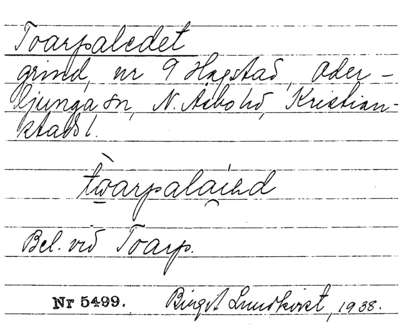 Toarpaledet
grind, nr 9 Hagstad, Oder-
ljunga sn, N. Åsbo hd, Kristian-
stads l.
Bel. vid Toarp.
Nr 5499. Birgit Lundkvist, 1938.